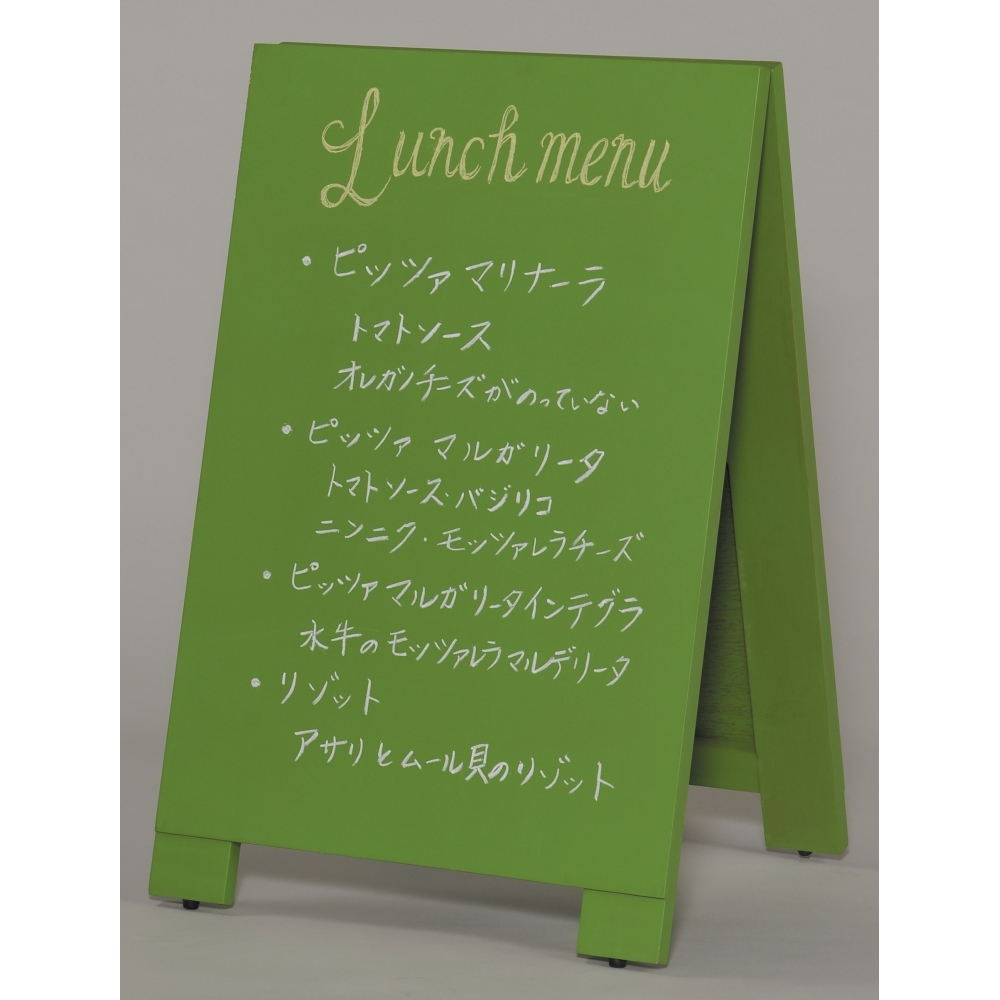 Lunch menu
・ピッツァ マリナーラ
トマトソース
オレガノチーズがのっていない
・ピッツァ マルガリータ
トマトソース・バジリコ
ニンニク・モッツァレラチーズ
・ピッツァ マルガリータインテグラ
水牛のモッツァレラマルデリータ
・リゾット
アサリとムール貝のリゾット